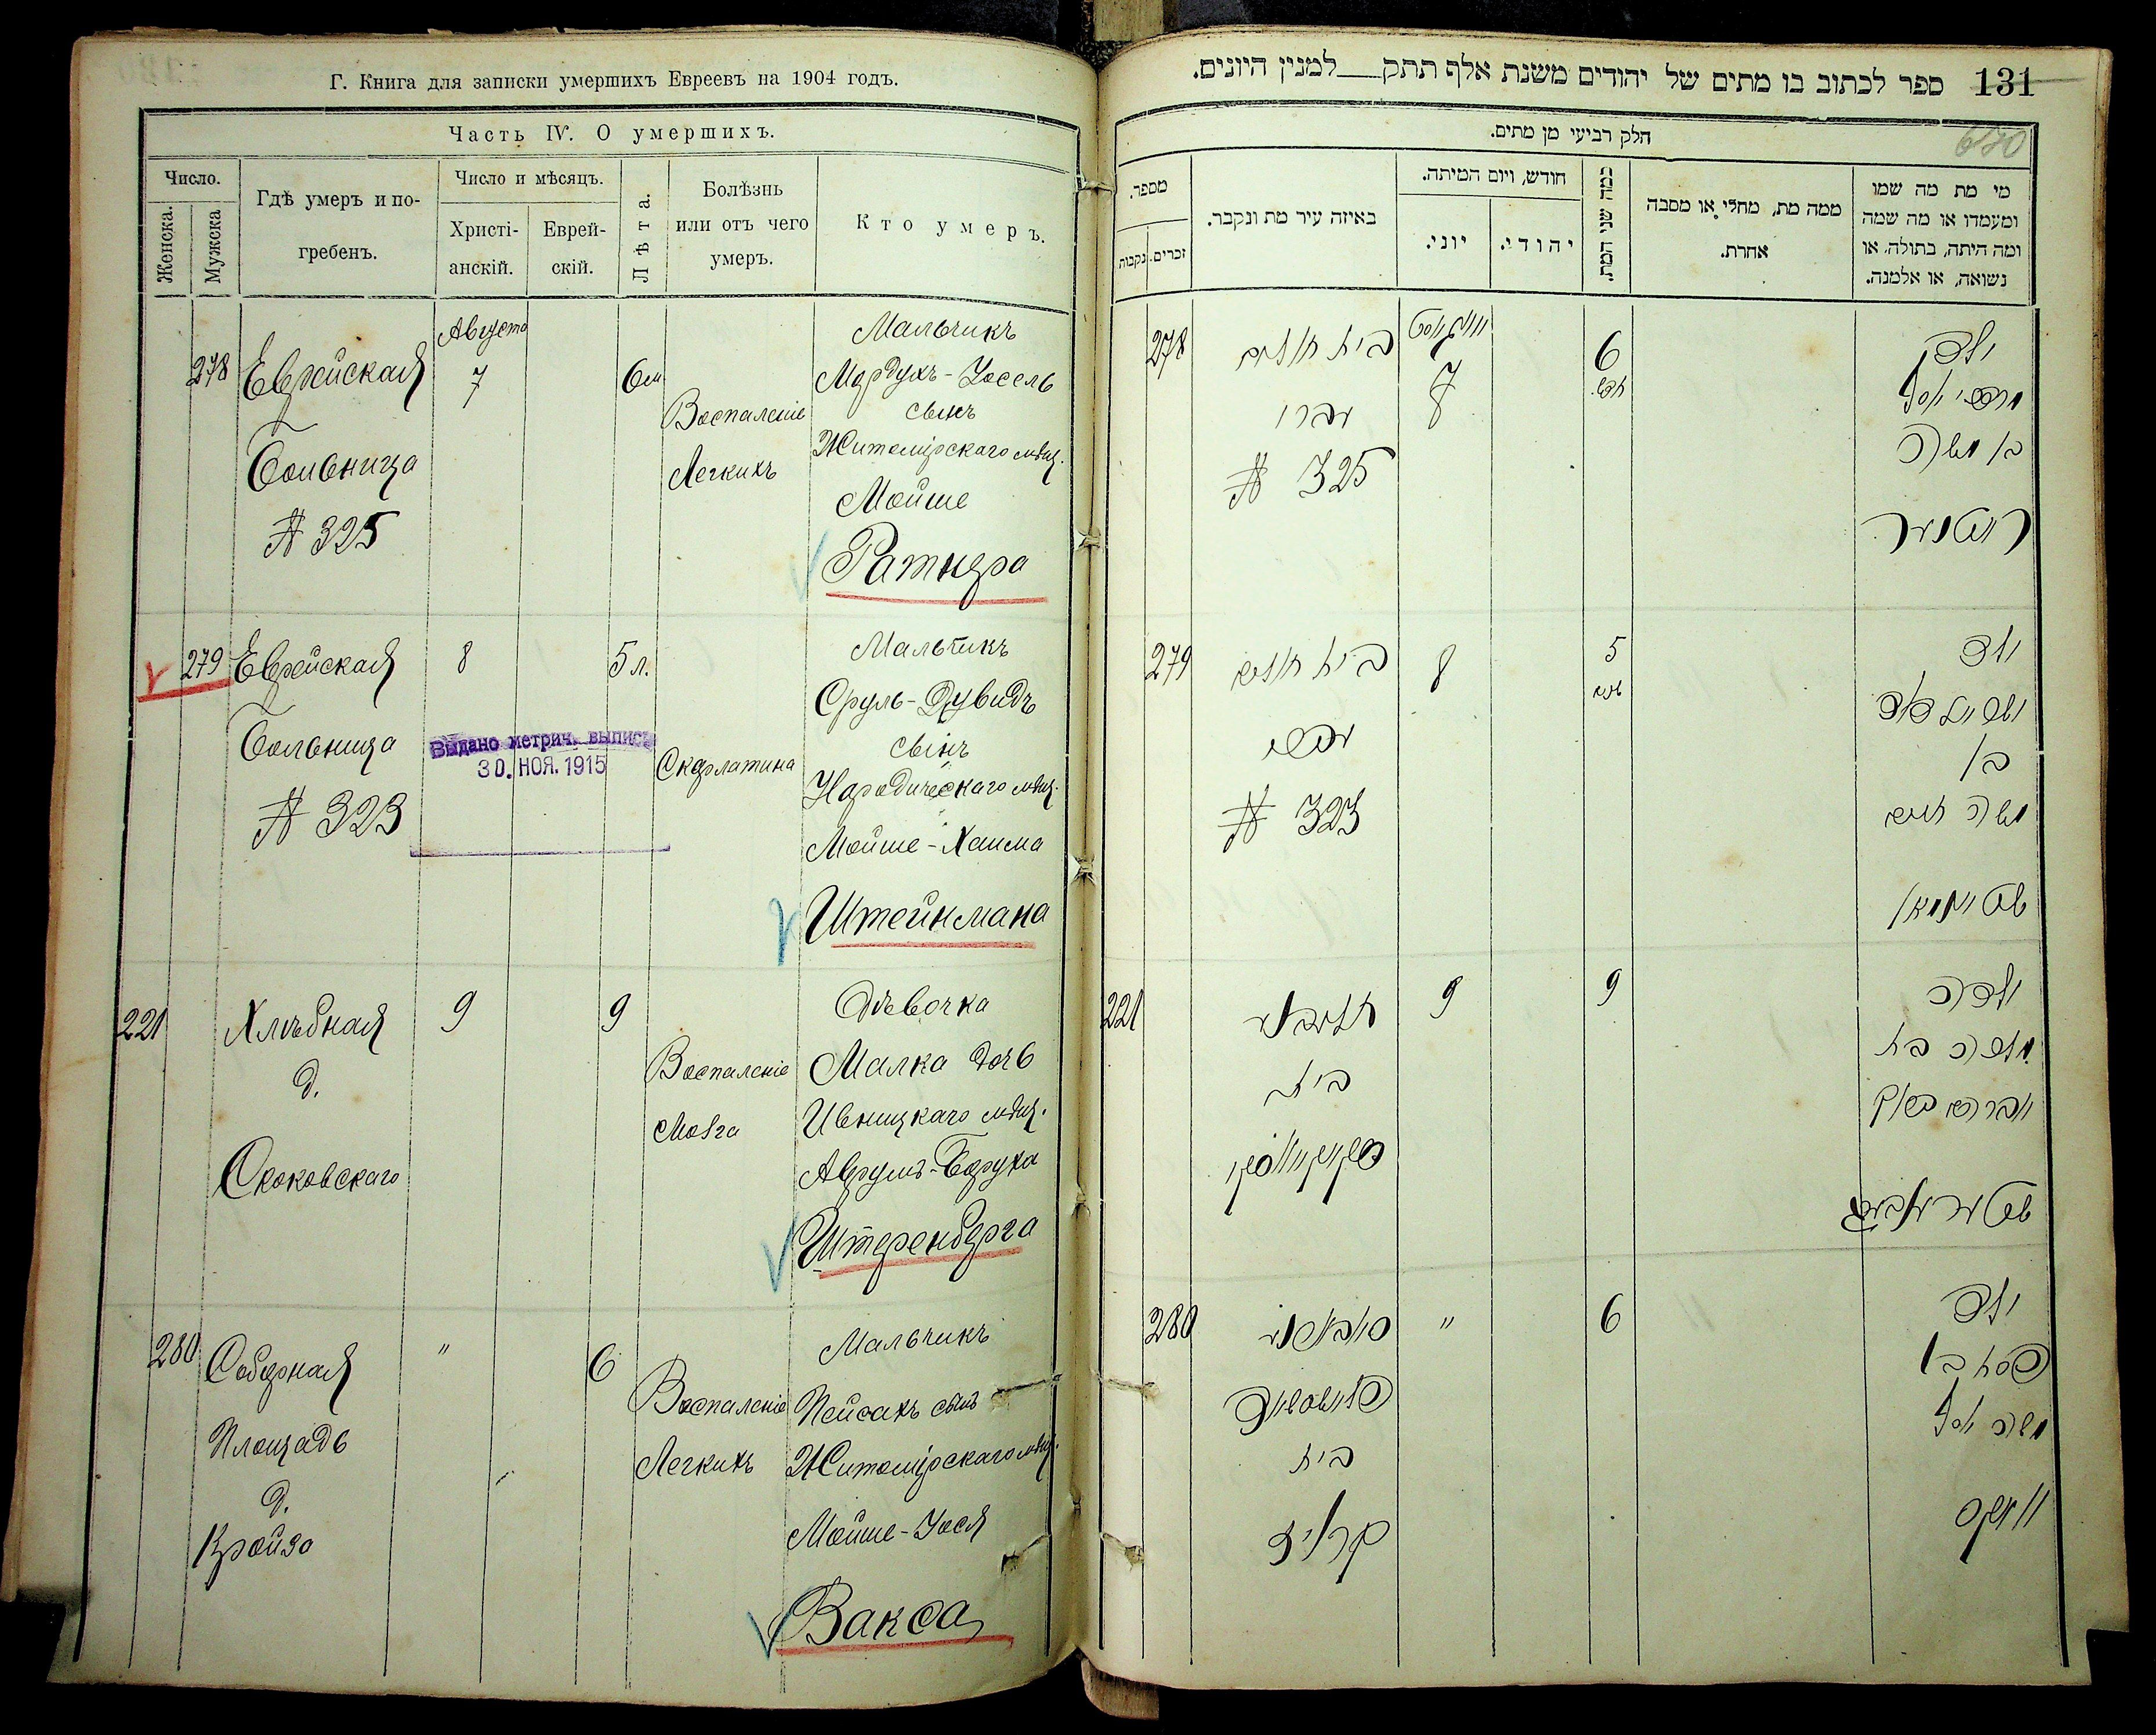 Г. Книга для записки умершихъ Евреевъ на 1904 годъ.
Часть IV. О умершихъ.
Число.
Женска.
Мужска
Гдѣ умеръ и по-
гребенъ.
Число и мѣсяцъ.
Христі-
анскій.
Еврей-
скій.
Лѣта.
Болѣзнь
или отъ чего
умеръ.
Кто умеръ.
278
Еврейская
Больница
№ 325
Августа
7
6 м
Воспаленіе
Легкихъ
Мальчикъ
Мордухъ-Іосель
сынъ
Житомірскаго мѣщ.
Мойше
Ратнера
279
Еврейская
Больница
№ 323
8
5 л.
Выдано метрич. выпись
30. НОЯ. 1915
Скарлатина
Мальчикъ
Сруль-Дувидъ
сынъ
Народическаго мѣщ.
Мойше-Хаима
Штейнмана
221
Хлѣбная
д.
Скоковскаго
9
9
Воспаленіе
Мозга
Дѣвочка
Малка дочь
Ивницкаго мѣщ.
Аврумъ-Боруха
Штеренберга
280
Соборная
Площадь
д.
Кройзо
"
6
Воспаленіе
Легкихъ
Мальчикъ
Пейсахъ сынъ
Житомірскаго мѣщ.
Мойше-Іося
Вакса
ספר לכתוב בו מתים של יהודים משנת אלף תתק למנין היונים.
131
חלק רביעי מן מתים.
670
מספר.
זכרים.
נקבות
באיזה עיר מת ונקבר.
חודש, ויום המיתה.
יוני.
יהודי.
כמה שני המת.
ממה מת, מחלי או מסבה
אחרת.
מי מת מה שמו
ומעמדו או מה שמה
ומה היתה, בתולה, או
נשואה, או אלמנה.
278
בית חולים
№ 325
אויגוסט
7
6
חדש
ילד
מרדכי יוסל
בן משה
ראטנער
279
בית חולים
№ 323
8
5
ילד
בן
משה חיים
שטיינמאן
221
בית
9
9
ילדה
מלכה בת
אברהם ברוך
שטערענבערג
280
בית
קרויז
"
6
ילד
פסח בן
משה יוסל
וואקס